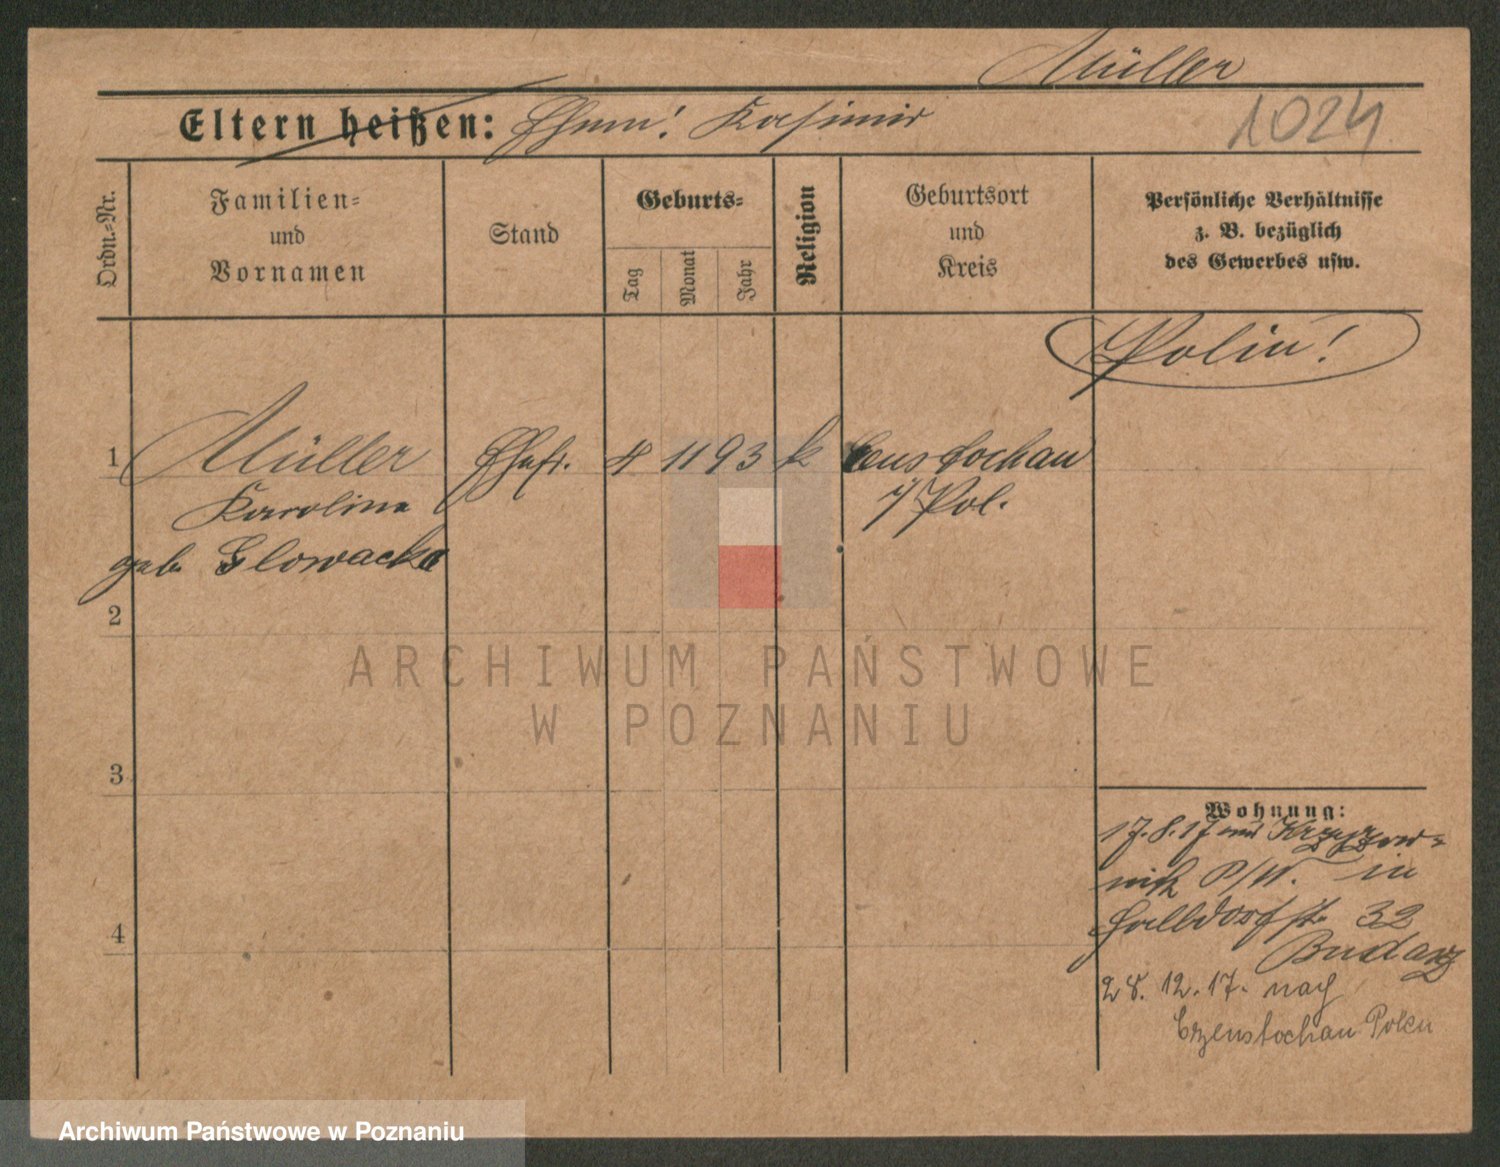 Müller
Eltern heißen: Ehem! Kasimir
1024
Ordn.=Nr.
Familien=
und
Vornamen
Stand
Geburts=
Tag
Monat
Jahr
Religion
Geburtsort
und
Kreis
Persönliche Verhältnisse
z. B. bezüglich
des Gewerbes usw.
Polin!
1 Müller Ehefr. 4 11 93 k Censtochau
Karolina i/Pol.
geb. Glowacka
2
ARCHIWUM PAŃSTWOWE
W POZNANIU
3
Wohnung:
17.8.17 aus
P/W. in
32
Budasz
4
28.12.17. nach
Czenstochau Polen
Archiwum Państwowe w Poznaniu